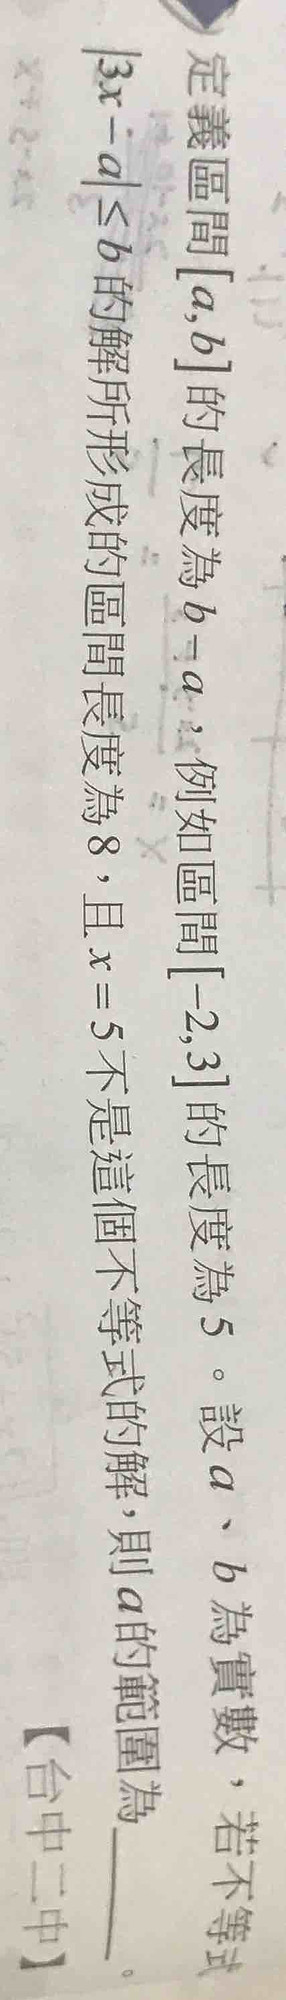 定義區間[a,b]的長度為b-a，例如區間[-2,3]的長度為5。設a、b為實數，若不等式
|3x-a|≤b的解所形成的區間長度為8，且x=5不是這個不等式的解，則a的範圍為____。
【台中二中】